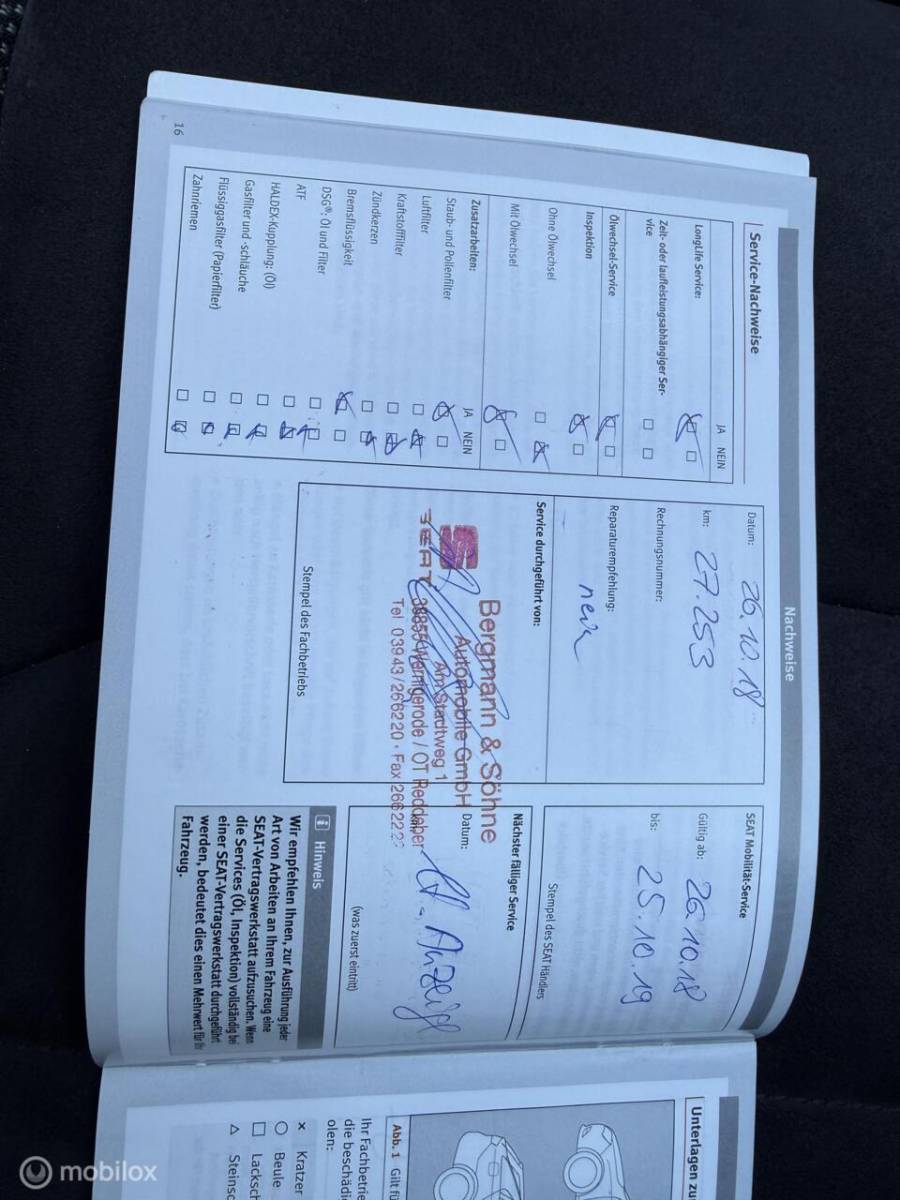 Nachweise
Service-Nachweise
JA NEIN
LongLife Service:
Zeit- oder laufleistungsabhängiger Ser-
vice
Ölwechsel-Service
Inspektion
Ohne Ölwechsel
Mit Ölwechsel
Zusatzarbeiten:
JA NEIN
Staub- und Pollenfilter
Luftfilter
Kraftstofffilter
Zündkerzen
Bremsflüssigkeit
DSG®: Öl und Filter
ATF
HALDEX-Kupplung: (Öl)
Gasfilter und -schläuche
Flüssiggasfilter (Papierfilter)
Zahnriemen
16
Datum: 26.10.18
km: 27.253
Rechnungsnummer:
Reparaturempfehlung:
nein
Service durchgeführt von:
Bergmann & Söhne
Automobile GmbH
Am Stadtweg 1
SEAT 38855 Wernigerode / OT Reddeber
Tel 03943/266220 · Fax
Stempel des Fachbetriebs
SEAT Mobilität-Service
Gültig ab: 26.10.18
bis: 25.10.19
Stempel des SEAT Händlers
Nächster fälliger Service
Datum:
lt. Anzeige
(was zuerst eintritt)
i Hinweis
Wir empfehlen Ihnen, zur Ausführung jeder
Art von Arbeiten an Ihrem Fahrzeug eine
SEAT-Vertragswerkstatt aufzusuchen. Wenn
die Services (Öl, Inspektion) vollständig bei
einer SEAT-Vertragswerkstatt durchgeführt
werden, bedeutet dies einen Mehrwert für Ihr
Fahrzeug.
Unterlagen zu
Abb. 1 Gilt fü
Ihr Fachbetrie
die beschädi
olen:
× Kratzer
Beule
Lacksch
Steinsc
mobilox